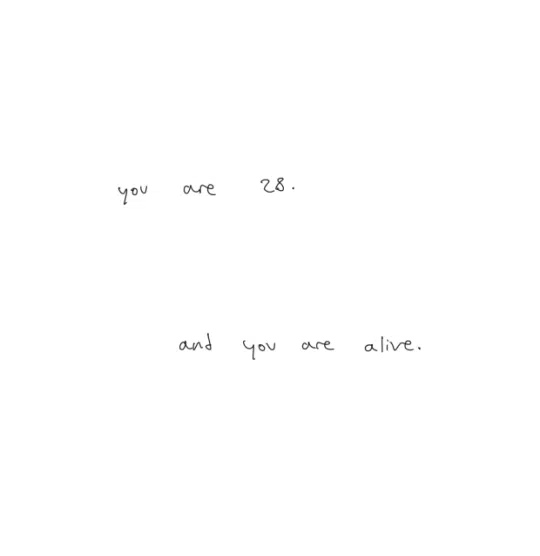 you are 28.
and you are alive.